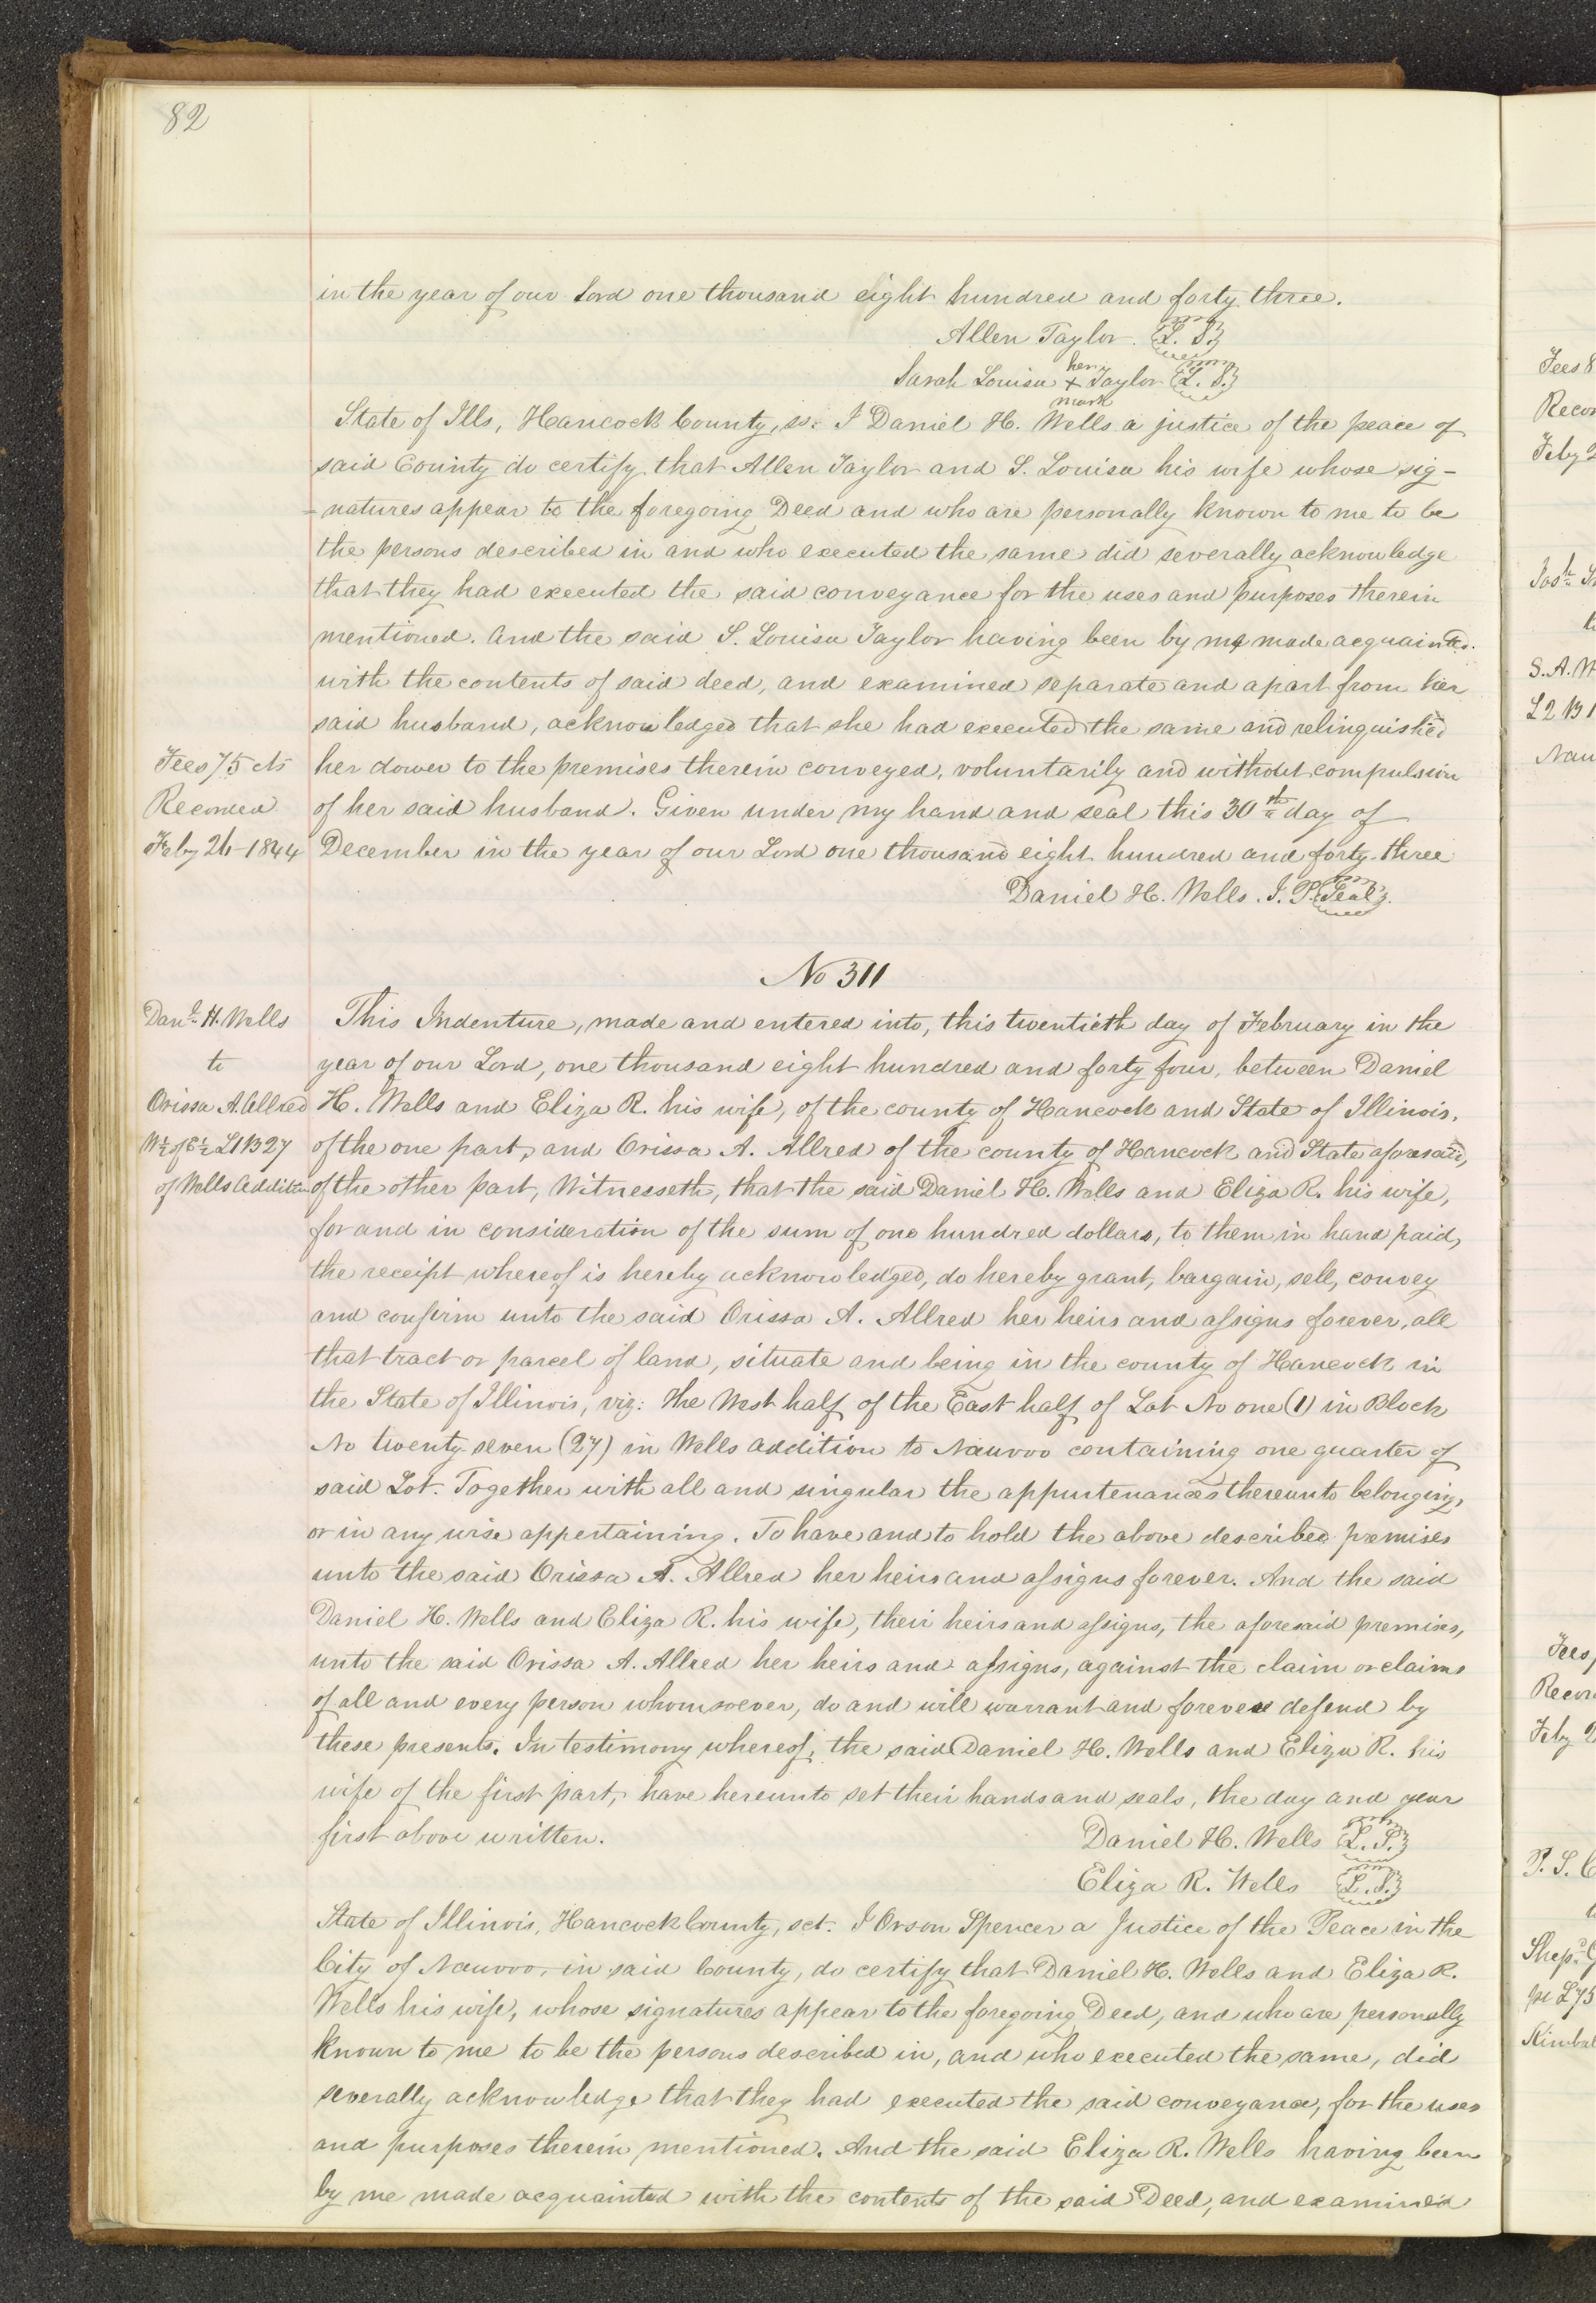 82
in the year of our Lord one thousand eight hundred and forty three.
Allen Taylor. L. S.
her
Sarah Louisa x Taylor L. S.
mark
State of Ills, Hancock County, ss. I Daniel H. Wells a justice of the peace of
said County do certify that Allen Taylor and S. Louisa his wife whose sig-
-natures appear to the foregoing Deed and who are personally known to me to be
the persons described in and who executed the same did severally acknowledge
that they had executed the said conveyance for the uses and purposes therein
mentioned. And the said S. Louisa Taylor having been by me made acquainted
with the contents of said deed, and examined separate and apart from her
said husband, acknowledged that she had executed the same and relinquished
Fees 75 cts
her dower to the premises therein conveyed, voluntarily and without compulsion
Recorded
of her said husband. Given under my hand and seal this 30th day of
Feby 26 1844
December in the year of our Lord one thousand eight hundred and forty three
Daniel H. Wells. J. P. Seal
No 311
Danl. H. Wells
This Indenture, made and entered into, this twentieth day of February in the
to
year of our Lord, one thousand eight hundred and forty four, between Daniel
Orissa A. Allred
H. Wells and Eliza R. his wife, of the county of Hancock and State of Illinois,
W½ of E½ L1 B27
of the one part, and Orissa A. Allred of the county of Hancock and State aforesaid,
of Wells Addition
of the other part, Witnesseth, that the said Daniel H. Wells and Eliza R. his wife,
for and in consideration of the sum of one hundred dollars, to them in hand paid,
the receipt whereof is hereby acknowledged, do hereby grant, bargain, sell, convey
and confirm unto the said Orissa A. Allred her heirs and assigns forever, all
that tract or parcel of land, situate and being in the county of Hancock in
the State of Illinois, viz: The West half of the East half of Lot No one (1) in Block
No twenty seven (27) in Wells addition to Nauvoo containing one quarter of
said Lot. Together with all and singular the appurtenances thereunto belonging,
or in any wise appertaining. To have and to hold the above described premises
unto the said Orissa A. Allred her heirs and assigns forever. And the said
Daniel H. Wells and Eliza R. his wife, their heirs and assigns, the aforesaid premises,
unto the said Orissa A. Allred her heirs and assigns, against the claim or claims
of all and every person whomsoever, do and will warrant and forever defend by
these presents. In testimony whereof, the said Daniel H. Wells and Eliza R. his
wife of the first part, have hereunto set their hands and seals, the day and year
first above written.
Daniel H. Wells L. S.
Eliza R. Wells L. S.
State of Illinois, Hancock County, sct. I Orson Spencer a Justice of the Peace in the
City of Nauvoo, in said County, do certify that Daniel H. Wells and Eliza R.
Wells his wife, whose signatures appear to the foregoing Deed, and who are personally
known to me to be the persons described in, and who executed the same, did
severally acknowledge that they had executed the said conveyance, for the uses
and purposes therein mentioned. And the said Eliza R. Wells having been
by me made acquainted with the contents of the said Deed, and examined
Fees 8
Feby 2
S. A.
L2 B1
Fees
Feby 2
P. S.